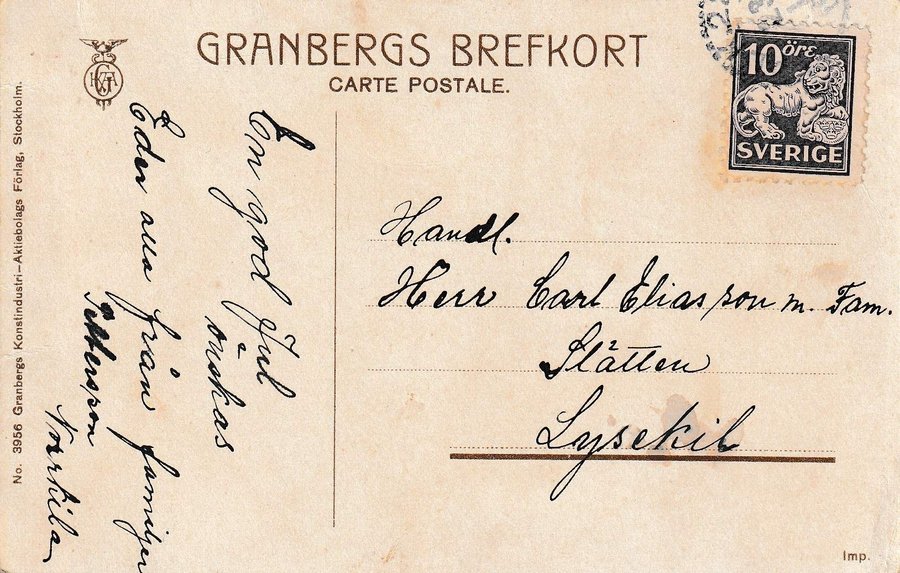 GRANBERGS BREFKORT
CARTE POSTALE.
10 öre
SVERIGE
No. 3956 Granbergs Konstindustri-Aktiebolags Förlag, Stockholm.
En god Jul
önskas
Eder alla från familjen
Pettersson
Norrkila
Handl.
Herr Carl Eliasson m. Fam.
Slätten
Lysekil
Imp.